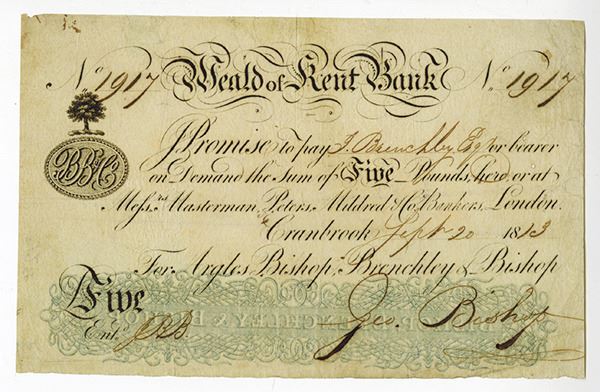 No 1917 Weald of Kent Bank No 1917
BB&Co
I Promise to pay J. Brenchley Esq or bearer
on Demand the Sum of Five Pounds, here or at
Messrs Masterman, Peters, Mildred & Co Bankers, London.
Cranbrook Sept 20 1813
For Argles Bishop, Brenchley & Bishop
Five
Entd
Geo. Bishop